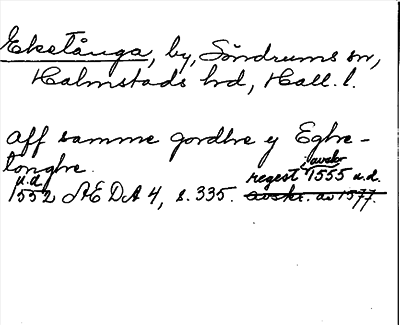 Eketånga, by, Söndrums sn,
Halmstads hd, Hall. l.
aff samme gordhe y Eghe-
tonghe.
u.d. avskr.
1552 ÆDA 4, s. 335. regest 1555 u.d.
avskr. av 1577.